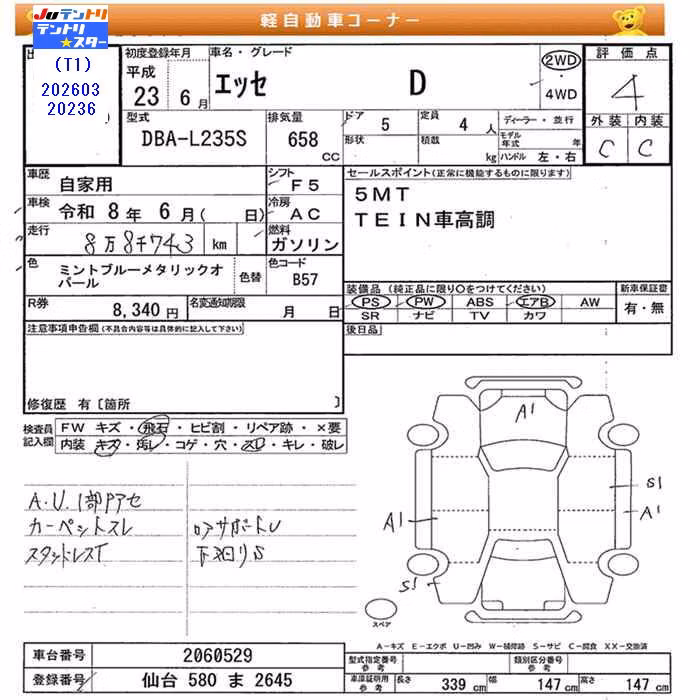 軽自動車コーナー
Juテントリ
テントリ★スター
(T1)
202603
20236
初度登録年月
平成
23 6月
車名・グレード
エッセ D
2WD
・
4WD
評価点
4
外装 内装
C C
型式
DBA-L235S
排気量
658
CC
ドア 5
形状
定員 4 人
積載
kg
ディーラー・並行
モデル
年式 年
ハンドル 左・右
車歴 自家用
シフト F5
車検 令和 8年 6月( 日)
冷房 AC
走行 8万8千743 km
燃料 ガソリン
色 ミントブルーメタリックオパール
色替
色コード B57
R券 8,340 円
名変通知期限 月 日
セールスポイント(正常に機能するものに限ります)
5MT
TEIN車高調
装備品 (純正品に限り○をつけてください)
PS PW ABS エアB AW
SR ナビ TV カワ
新車保証書
有・無
後日品
注意事項申告欄(不具合内容等は具体的に記入して下さい)
修復歴 有〔箇所 〕
検査員
記入欄
FW キズ・飛石・ヒビ割・リペア跡・×要
内装 キズ・汚レ・コゲ・穴・スレ・キレ・破レ
A.U.1部Pアセ
カーペットスレ
スタットレスT
コアサポートU
下廻りS
A1
A1
S1
A1
S1
スペア
A-キズ E-エクボ U-凹み W-補修跡 S-サビ C-腐食 XX-交換済
車台番号 2060529
登録番号 仙台 580 ま 2645
型式指定番号
参考
類別区分番号
参考
車庫証明用
参考
長さ 339 cm 幅 147 cm 高さ 147 cm